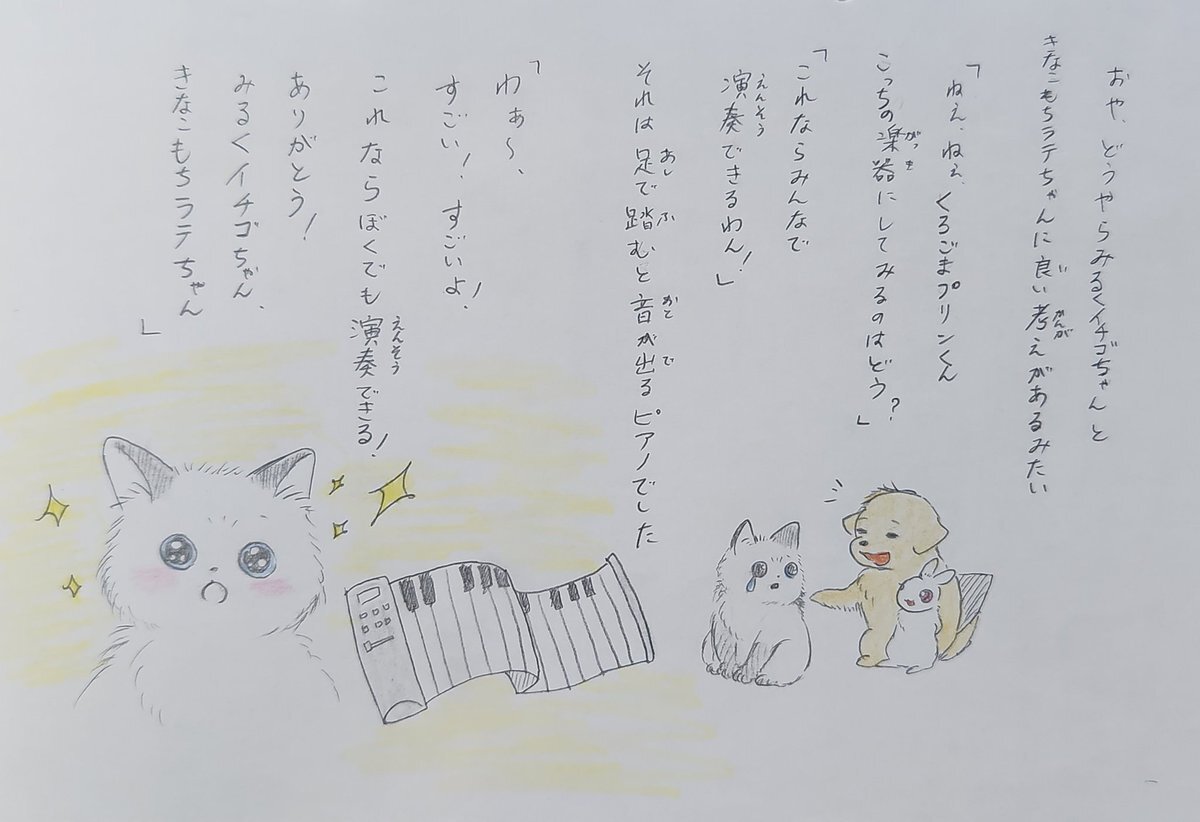 おや、どうやらみるくイチゴちゃんと
きなこもちラテちゃんに良い考えがあるみたい
「ねぇ、ねぇ、くろごまプリンくん
こっちの楽器にしてみるのはどう？」
「これならみんなで
演奏できるわん！」
それは足で踏むと音が出るピアノでした
「わぁ〜、
すごい！すごいよ！
これならぼくでも演奏できる！
ありがとう！
みるくイチゴちゃん、
きなこもちラテちゃん」